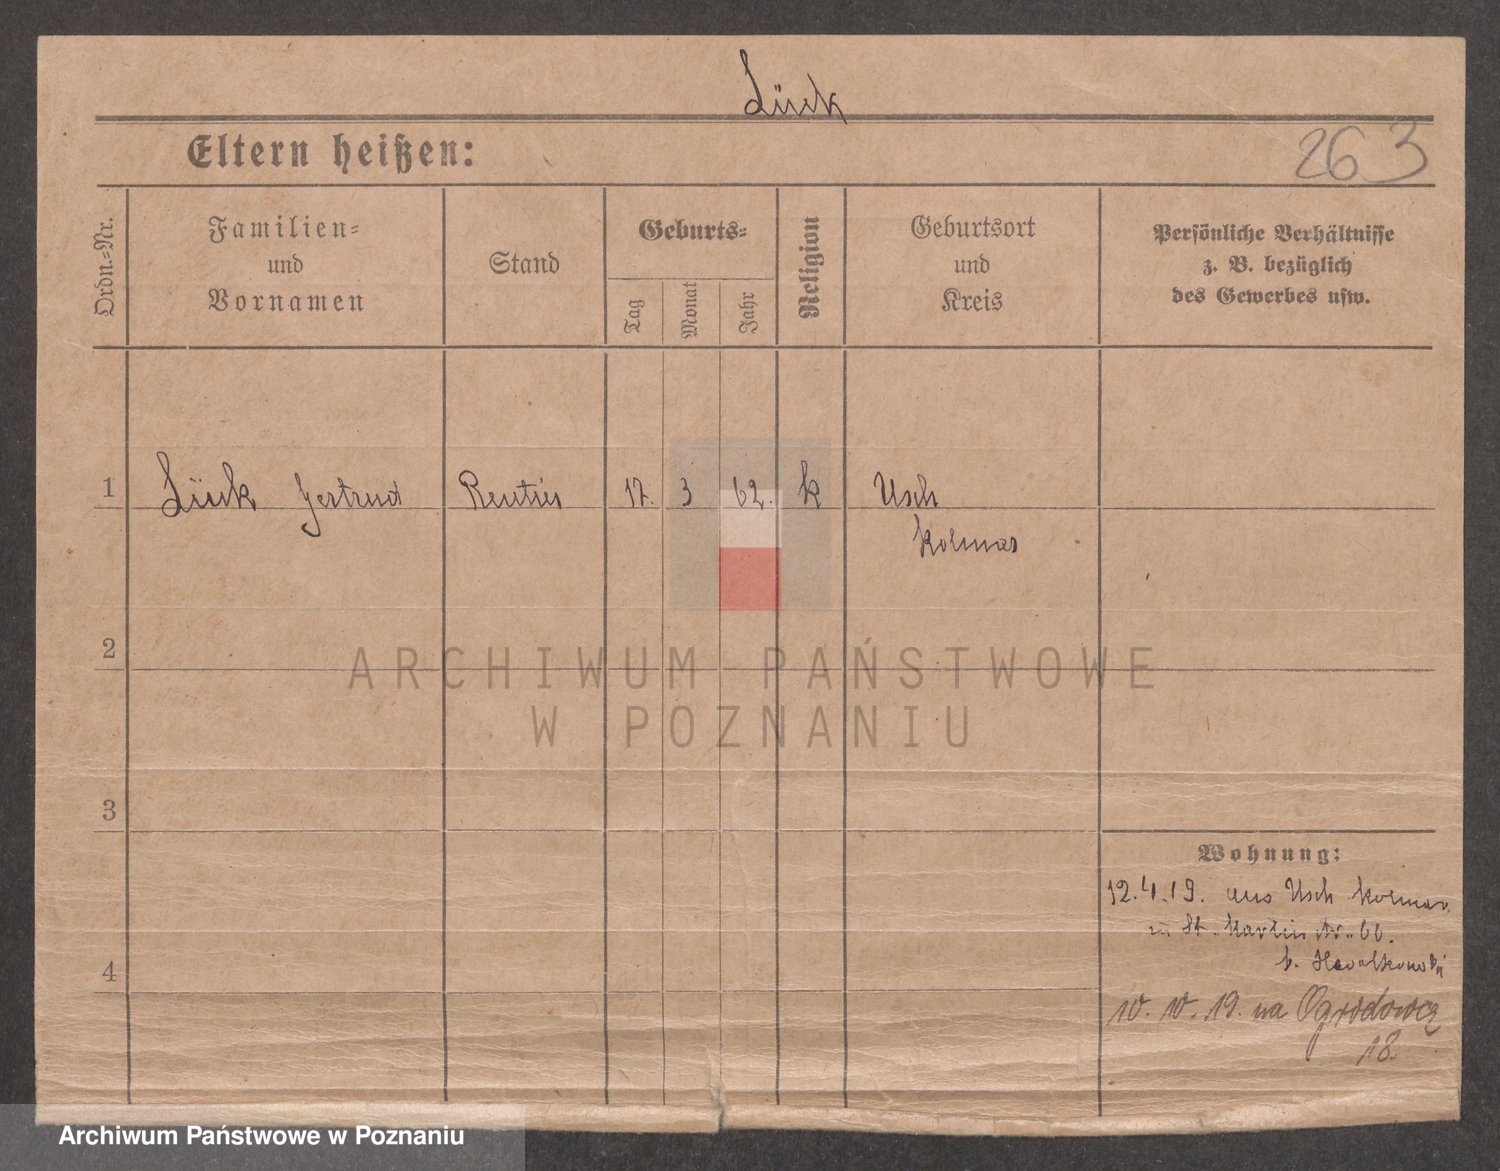 Lück
Eltern heißen:
263
Ordn.-Nr.
Familien-
und
Vornamen
Stand
Geburts-
Tag
Monat
Jahr
Religion
Geburtsort
und
Kreis
Persönliche Verhältnisse
z. B. bezüglich
des Gewerbes usw.
1 Lück Gertrud Rentiere 17. 3 62. k Usch
Kolmar
2
ARCHIWUM PAŃSTWOWE
W POZNANIU
3
Wohnung:
12.4.19. aus Usch Kolmar
St. Martinstr. 60.
b.
4
10. 10. 19. na Ogrodową
18.
Archiwum Państwowe w Poznaniu